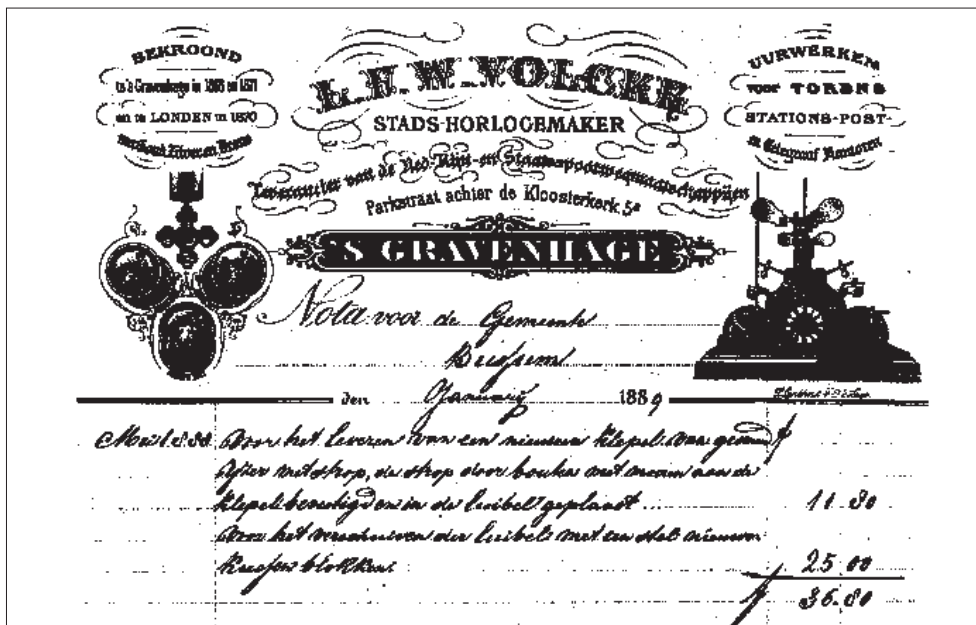 BEKROOND
te 's Gravenhage in 1868 en 1871
en te LONDEN in 1870
met Goud Zilver en Brons
L. H. W. VOLCKE
STADS-HORLOGEMAKER
Leverancier van de Ned. Rijn- en Staatsspoorwegmaatschappijen
Parkstraat achter de Kloosterkerk 5a
'S GRAVENHAGE
UURWERKEN
voor TORENS
STATIONS-POST-
en Telegraaf Kantoren
Nota voor de Gemeente
Bussum
den January 1889
Voor het leveren van een nieuwen klepel van
met strop, de strop door bouten met aan de
klepel bevestigd en in de luibel geplaatst 11.80
Voor het verschuiven der luibels met een stel nieuwe
blokken 25.00
f 36.80